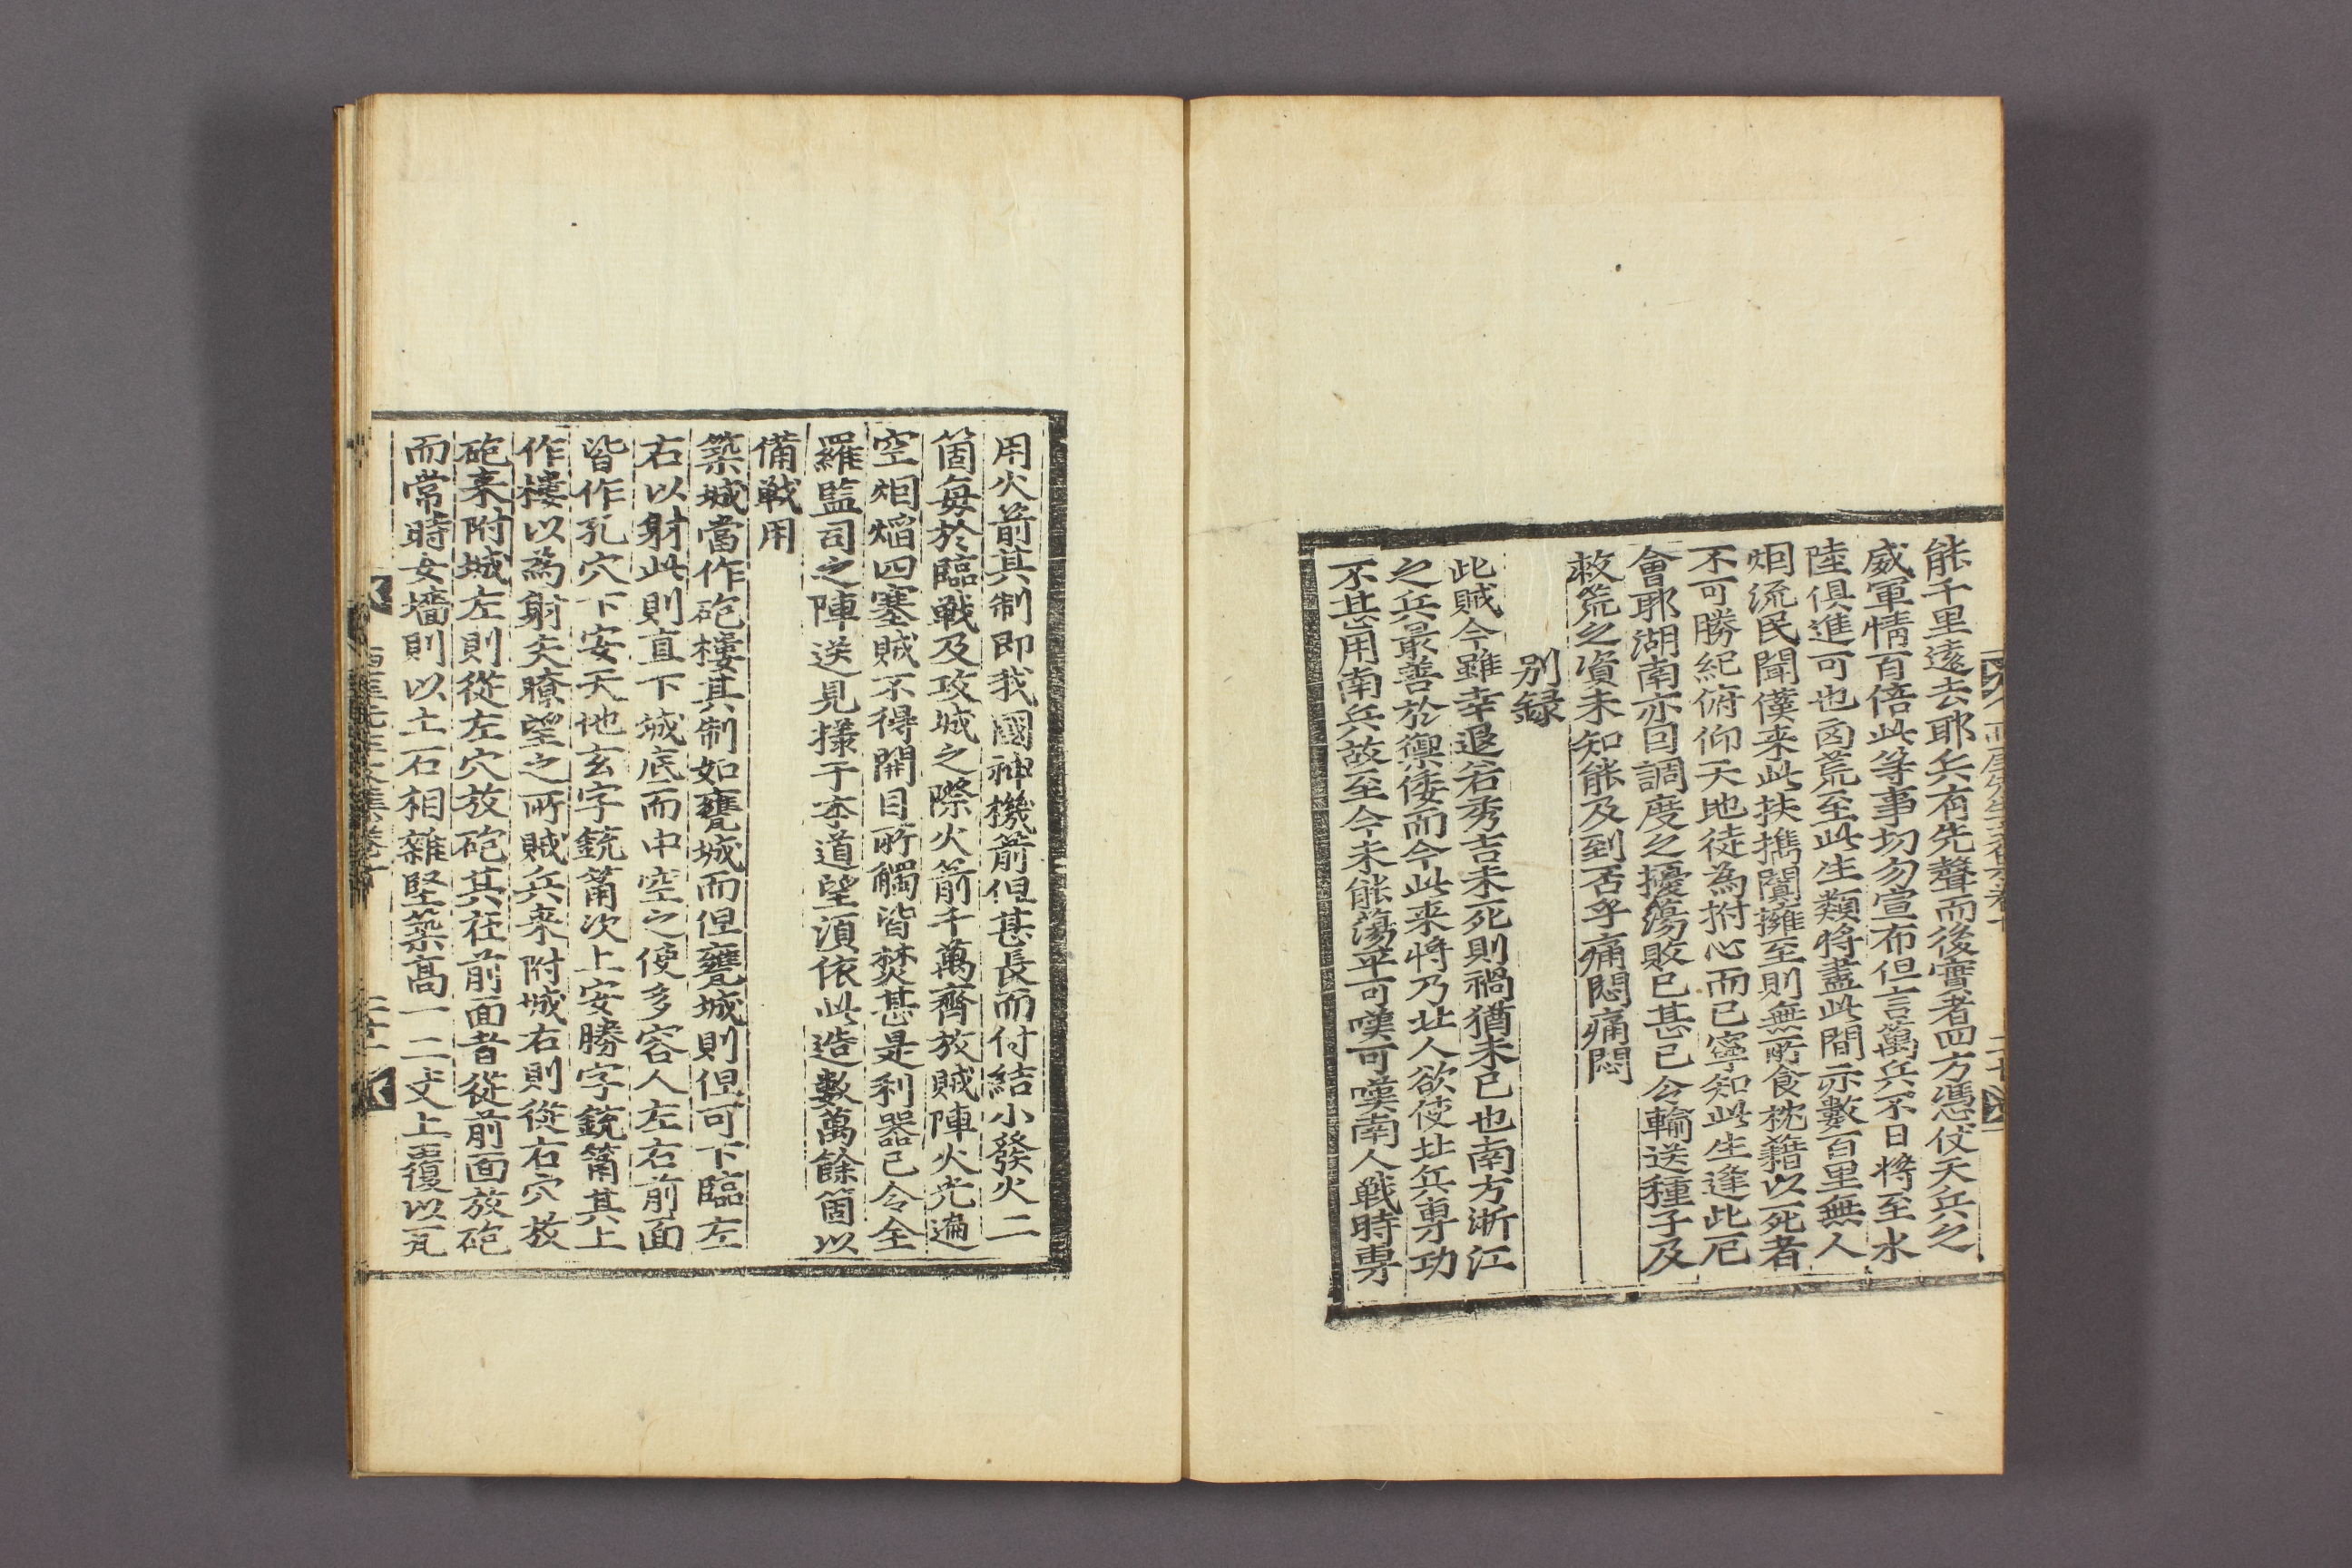 能千里遠去耶兵有先聲而後實者四方憑仗天兵之
威軍情百倍此等事切勿宣布但言萬兵不日將至水
陸俱進可也凶荒至此生類將盡此間亦數百里無人
烟流民聞僕来此扶携闐擁至則無所食枕藉以死者
不可勝紀俯仰天地徒為拊心而已寧知此生逢此厄
會耶湖南亦曰調度之擾蕩敗已甚已令輸送種子及
救荒之資未知能及到否乎痛悶痛悶
別録
此賊今雖幸退若秀吉未死則禍猶未已也南方浙江
之兵最善於禦倭而今此来將乃北人欲使北兵專功
不甚用南兵故至今未能蕩平可嘆可嘆南人戦時專
用火箭其制即我國神機箭但甚長而付結小發火二
箇每於臨戦及攻城之際火箭千萬齊放賊陣火光遍
空烟熖四塞賊不得開目所觸皆焚甚是利器已令全
羅監司之陣送見㨾于本道望須依此造數萬餘箇以
備戦用
築城當作砲樓其制如甕城而但甕城則但可下臨左
右以射此則直下城底而中空之使多容人左右前面
皆作孔穴下安天地玄字銃筩次上安勝字銃筩其上
作樓以為射矢瞭望之所賊兵来附城右則從右穴放
砲来附城左則從左穴放砲其在前面者從前面放砲
而常時女墻則以土石相雜堅築高一二丈上覆以瓦